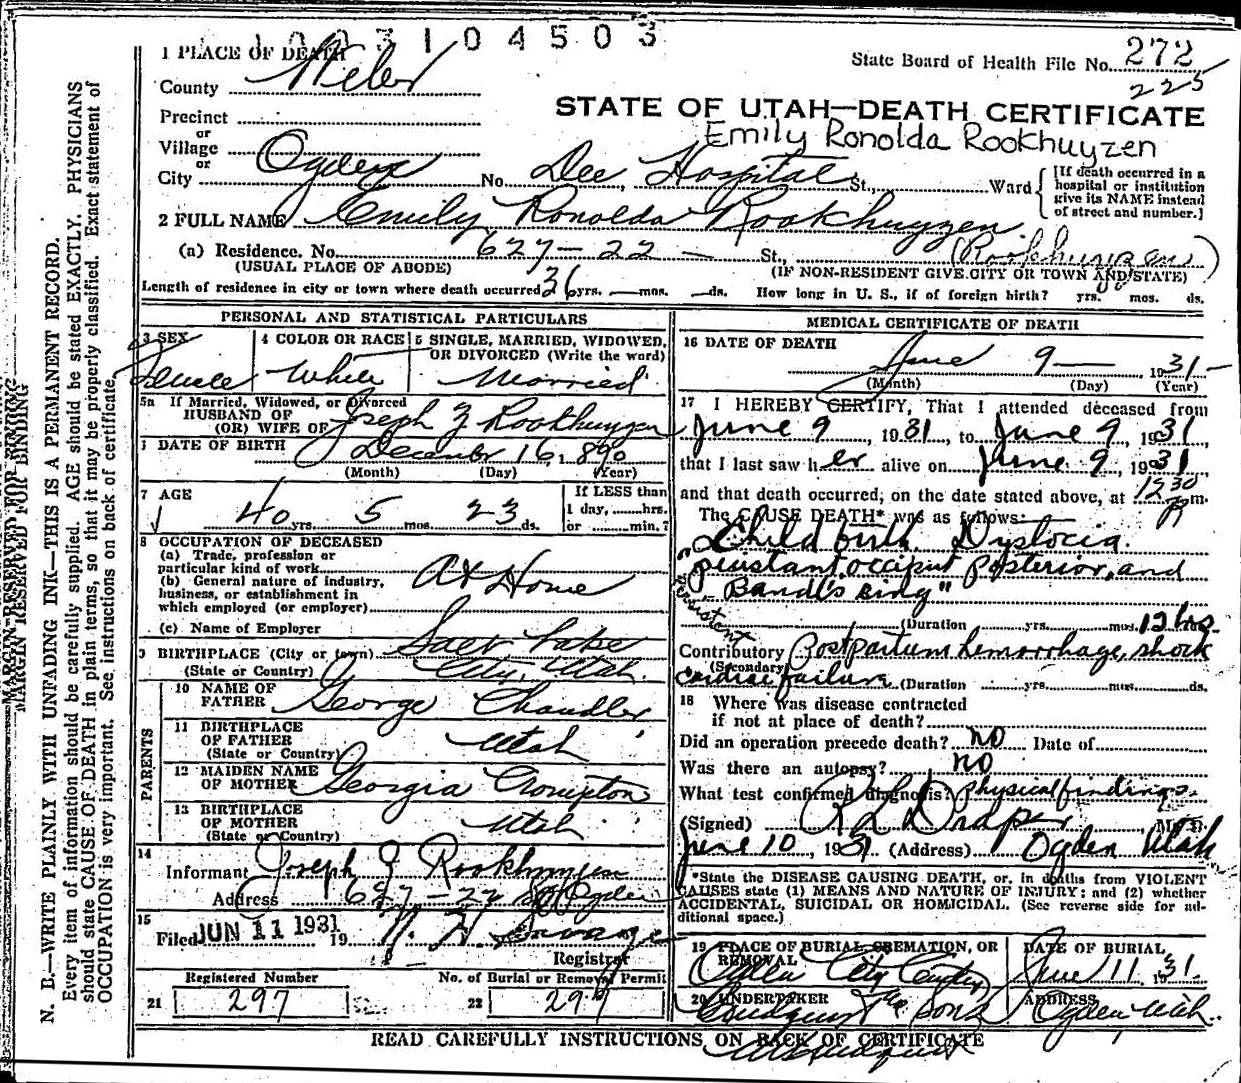 1 0 0 3 1 0 4 5 0 3
1 PLACE OF DEATH
State Board of Health File No. 272
225
County Weber
STATE OF UTAH—DEATH CERTIFICATE
Precinct
Emily Ronolda Rookhuyzen
or
Village
or
City Ogden No. Dee Hospital St., Ward
[If death occurred in a hospital or institution give its NAME instead of street and number.]
2 FULL NAME Emily Ronolda Rookhuyzen
(a) Residence. No. 627—22 — St.,
(USUAL PLACE OF ABODE) (IF NON-RESIDENT GIVE CITY OR TOWN AND STATE)
Length of residence in city or town where death occurred 36 yrs. — mos. — ds. How long in U. S., if of foreign birth? yrs. mos. ds.
PERSONAL AND STATISTICAL PARTICULARS
3 SEX Female
4 COLOR OR RACE White
5 SINGLE, MARRIED, WIDOWED, OR DIVORCED (Write the word) Married
5a If Married, Widowed, or Divorced
HUSBAND OF
(OR) WIFE OF Joseph J Rookhuyzen
DATE OF BIRTH December 16, 1890
(Month) (Day) (Year)
7 AGE 40 yrs. 5 mos. 23 ds.
If LESS than 1 day, hrs. or min.?
8 OCCUPATION OF DECEASED
(a) Trade, profession or particular kind of work
(b) General nature of industry, business, or establishment in which employed (or employer) At Home
(c) Name of Employer
9 BIRTHPLACE (City or town) Salt Lake
(State or Country) City, Utah
PARENTS
10 NAME OF FATHER George Chandler
11 BIRTHPLACE OF FATHER (State or Country) Utah
12 MAIDEN NAME OF MOTHER Georgia Crompton
13 BIRTHPLACE OF MOTHER (State or Country) Utah
14
Informant Joseph J Rookhuyzen
Address 627—22 St Ogden
15
Filed JUN 11 1931 19
Registrar
Registered Number
21 297
No. of Burial or Removal Permit
22 297
MEDICAL CERTIFICATE OF DEATH
16 DATE OF DEATH
June 9— 1931—
(Month) (Day) (Year)
17 I HEREBY CERTIFY, That I attended deceased from
June 9, 1931, to June 9, 1931,
that I last saw her alive on June 9, 1931
and that death occurred, on the date stated above, at 12 30 P m.
The CAUSE DEATH* was as follows:
"Childbirth. Dystocia.
persistant occiput posterior, and
Bandl's ring"
persistent
(Duration yrs. mos. 12 hrs.
Contributory Postpartum hemorrhage, shock
(Secondary)
cardiac failure (Duration yrs. mos. ds.
18 Where was disease contracted
if not at place of death?
Did an operation precede death? no Date of
Was there an autopsy? no
What test confirmed diagnosis? physical findings.
(Signed) R L Draper, M. D.
June 10, 1931 (Address) Ogden Utah
*State the DISEASE CAUSING DEATH, or, in deaths from VIOLENT
CAUSES state (1) MEANS AND NATURE OF INJURY; and (2) whether
ACCIDENTAL, SUICIDAL OR HOMICIDAL. (See reverse side for additional space.)
19 PLACE OF BURIAL, CREMATION, OR REMOVAL
Ogden City Cemtry
DATE OF BURIAL
June 11, 1931.
20 UNDERTAKER
Lindquist & Sons
ADDRESS
Ogden Utah.
READ CAREFULLY INSTRUCTIONS ON BACK OF CERTIFICATE
MARGIN RESERVED FOR BINDING
N. B.—WRITE PLAINLY WITH UNFADING INK—THIS IS A PERMANENT RECORD.
Every item of information should be carefully supplied. AGE should be stated EXACTLY. PHYSICIANS
should state CAUSE OF DEATH in plain terms, so that it may be properly classified. Exact statement of
OCCUPATION is very important. See instructions on back of certificate.